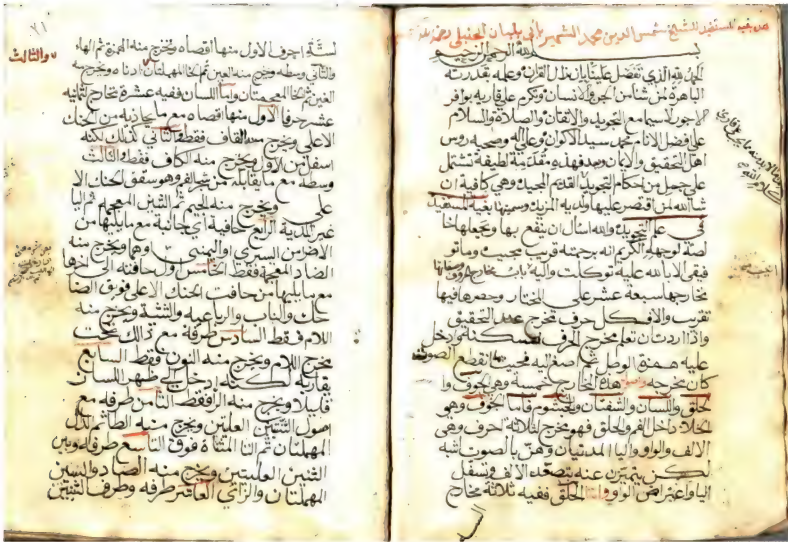 بغية المستفيد للشيخ شمس الدين محمد الشهير بابن بلبان الحنبلي رحمه الله
بسم الله الرحمن الرحيم
الحمد لله الذي تفضل علينا بانزال القران وعلمه بقدرته
الباهرة لمن شاء من الجن والانسان وتكرم على قاريه بوافر
الاجور لا سيما مع التجويد والاتقان والصلاة والسلام
على افضل الانام محمد سيد الاكوان وعلى اله وصحبه روس
اهل التحقيق والايمان وبعد فهذه مقدمة لطيفة تشتمل
على جمل من احكام التجويد القديم المجيد وهي كافية ان
شا الله لمن اقتصر عليها ولديه المزيد وسميتها بغية المستفيد
في علم التجويد والله اسال ان ينفع بها ويجعلها خا
لصة لوجهه الكريم انه برحمته قريب مجيب وما تو
فيقي الا بالله عليه توكلت واليه انيب باب مخارج الحروف وصفاتها
مخارجها سبعة عشر على المختار وحصرها فيها
تقريب والا فلكل حرف مخرج عند التحقيق
واذا اردت ان تعلم مخرج الحرف فسكنه وادخل
عليه همزة الوصل ثم اصغ اليه فحيث انقطع الصوت
كان مخرجه واصول هذه المخارج خمسة وهي الجوف وا
لحلق واللسان والشفتان والخيشوم فاما الجوف وهو
الخلا داخل الفم والحلق فهو مخرج لثلاثة احرف وهي
الالف والواو واليا المديتان وهن بالصوت اشبه
لكن يتميزن عنه بتصعد الالف وتسفل
اليا واعتراض الواو واما الحلق ففيه ثلاثة مخارج
٦١
لستة احرف الاول منها اقصاه ويخرج منه الهمزة ثم الهاء
والثاني وسطه ويخرج منه العين ثم الحا المهملتان ادناه ويخرج منه
والثالث
الغين ثم الخا المعجمتان واما اللسان ففيه عشرة مخارج لثمانية
عشر حرفا الاول منها اقصاه مع ما يحاذيه من الحنك
الاعلى ويخرج منه القاف فقط والثاني كذلك لكنه
اسفل من الاول ويخرج منه الكاف فقط والثالث
وسطه مع ما يقابله من وهو سقف الحنك الا
على ويخرج منه الجيم ثم الشين المعجمة ثم اليا
غير المدية الرابع حافته اي جانبه مع ما يليها من
الاضراس اليسرى او اليمنى وهما ويخرج منه
الضاد المعجمة فقط الخامس اول حافته الى اخرها
مع ما يليها من حافت الحنك الاعلى فويق الضا
حك والناب والرباعية والثنية ويخرج منه
اللام فقط السادس طرفه مع ذلك تحت
مخرج اللام ويخرج منه النون فقط السابع
يقاربه لكنه ادخل الى ظهر اللسان
قليلا ويخرج منه الرا فقط الثامن طرفه مع
اصول الثنتين العليتين ويخرج منه الطا ثم الدال
المهملتان ثم التا المثناة فوق التاسع طرفه وبين
الثنيتين العليتين ويخرج منه الصاد والسين
المهملتان والزاي العاشر طرفه وطرف الثنيتين